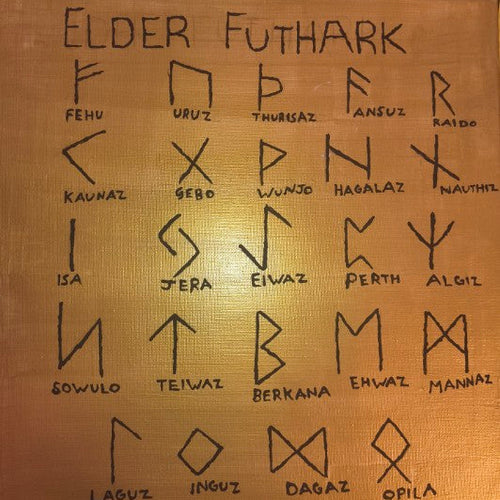 ELDER FUTHARK
ᚠ ᚢ ᚦ ᚨ ᚱ
FEHU URUZ THURISAZ ANSUZ RAIDO
ᚲ ᚷ ᚹ ᚺ ᚾ
KAUNAZ GEBO WUNJO HAGALAZ NAUTHIZ
ᛁ ᛃ ᛇ ᛈ ᛉ
ISA JERA EIWAZ PERTH ALGIZ
ᛋ ᛏ ᛒ ᛖ ᛗ
SOWULO TEIWAZ BERKANA EHWAZ MANNAZ
ᛚ ᛜ ᛞ ᛟ
LAGUZ INGUZ DAGAZ OPILA